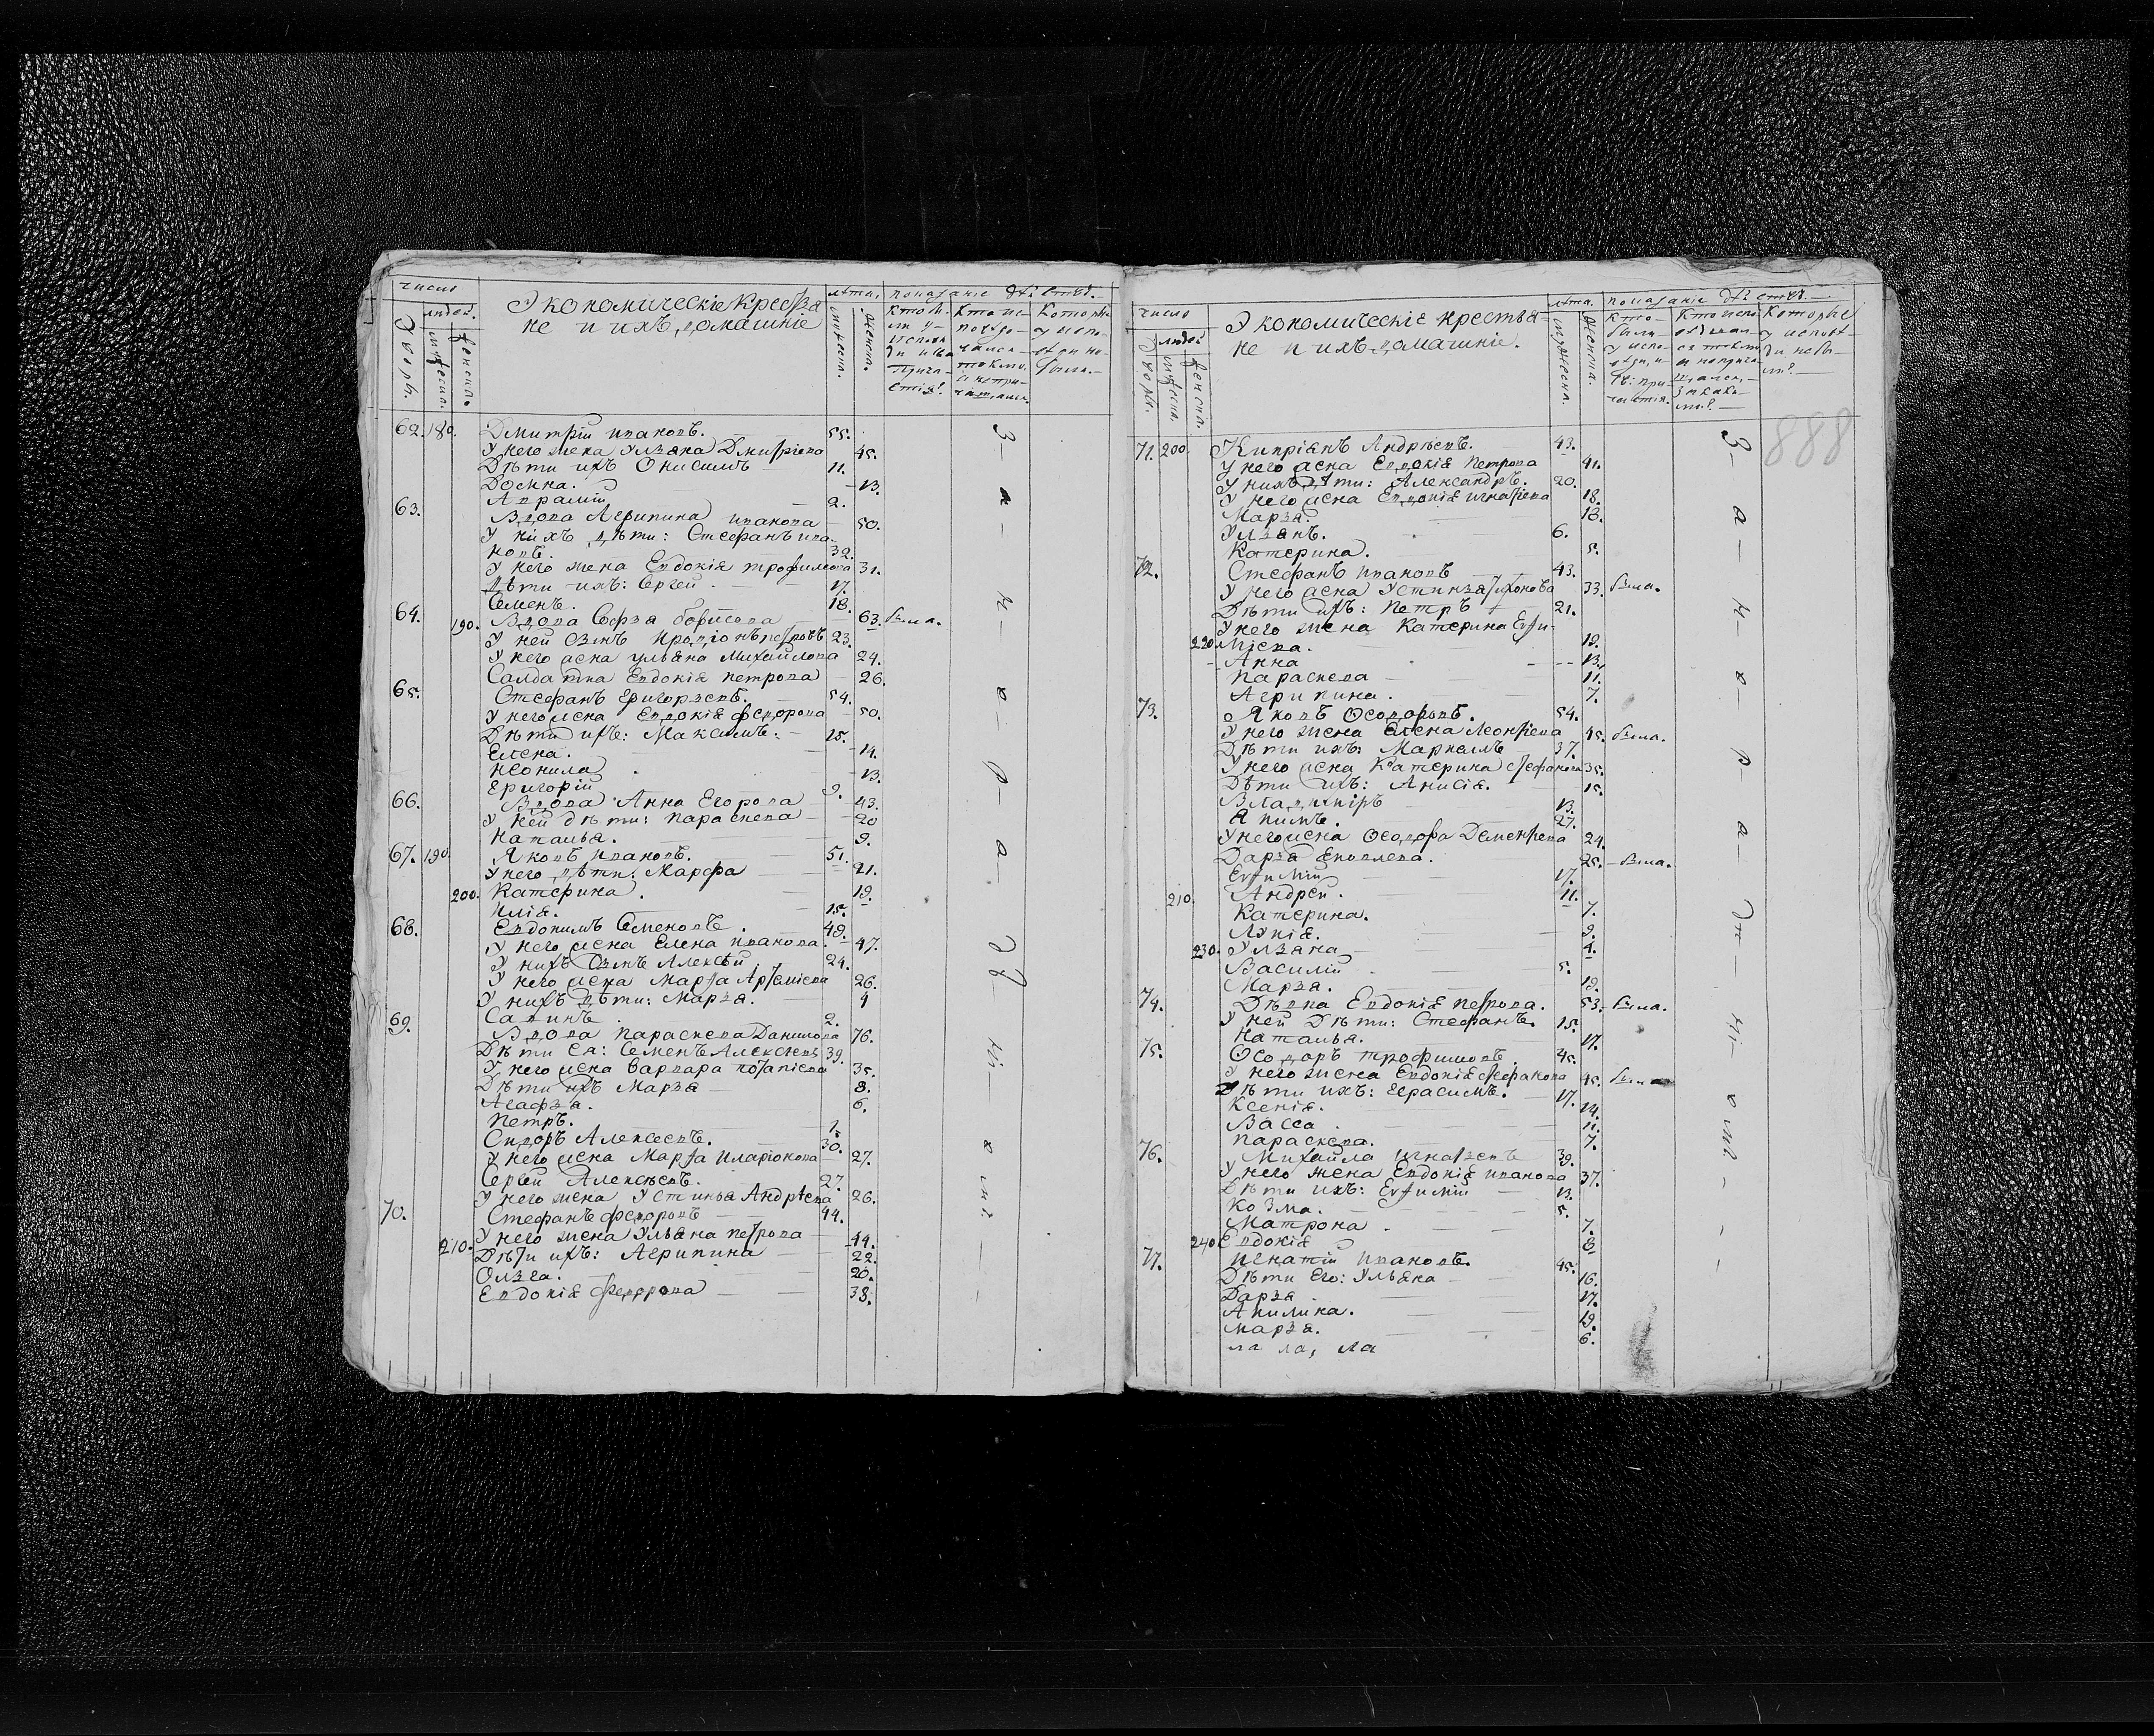 число
людей.
лѣта.
показаніе дѣйствъ.
Экономическіе крестья
не и ихъ домашніе
Дворы.
мужеска.
женска.
мужеска.
женска.
62. 180. Дмитрій Ивановъ. 55.
У него жена Ульяна Дмитріева 45.
Дѣти ихъ Онисимъ 11.
Домна. 13.
Аврамій 2.
63. Вдова Агрипина Иванова 50.
У нихъ дѣти: Стефанъ Ива
новъ. 32.
У него жена Евдокія Трофимова 31.
Дѣти ихъ: Сергей 17.
Семенъ. 18.
64. 190. Вдова Софья Борисова 63. была.
У ней сынъ Иродіонъ Петровъ 23.
У него жена Ульяна Михайлова 24.
Салдатка Евдокія Петрова 26.
65. Стефанъ Григорьевъ. 54.
У него жена Евдокія Федорова 50.
Дѣти ихъ: Максимъ: 15.
Елена. 14.
Неонила 13.
Григорій 9.
66. Вдова Анна Егорова 43.
У ней дѣти: Параскева 20
Наталья. 9.
67. 190. Яковъ Ивановъ. 51.
У него дѣти: Марфа 21.
200. Катерина. 19.
Илія. 15.
68. Евдокимъ Семеновъ. 49.
У него жена Елена Иванова. 47.
У нихъ сынъ Алексѣй 24.
У него жена Марфа Артемієва 26.
У нихъ дѣти: Марья. 4
Савинъ 2.
69. Вдова Параскева Данилова 76.
Дѣти ея: Семенъ Алексѣевъ 39.
У него жена Варвара Потапіева 35.
Дѣти ихъ Марья 8.
Агафья. 6.
Петръ. 1.
Сидоръ Алексеевъ. 30.
У него жена Марфа Иларіонова 27.
Сергей Алексѣевъ. 27.
У него жена Устинья Андрѣева 26.
70. Стефанъ Федоровъ 44.
У него жена Ульяна Петрова 44.
210. Дѣти ихъ: Агрипина 22.
Ольга. 20.
Евдокія Федорова 38.
За нерадѣніемъ
число
людей
лѣта.
показаніе дѣйствъ.
Экономическіе крестья
не и ихъ домашніе.
Дворы.
мужеска.
женска.
мужеска.
женска.
888
71. 200. Кипріянъ Андрѣевъ. 43.
У него жена Евдокія Петрова 41.
У нихъ дѣти: Александръ. 20.
У него жена Евдокія Игнатіева 18.
Марья. 18.
Ульянъ. 6.
Катерина. 5.
72. Стефанъ Ивановъ 43.
У него жена Устинья Тихонова 33. была.
Дѣти ихъ: Петръ 21.
У него жена Катерина Евѳи-
220 міева. 19.
Анна 13.
Параскева 11.
Агрипина. 7.
73. Яковъ Ѳеодоровъ. 54.
У него жена Елена Леонтіева 45. была.
Дѣти ихъ: Маркелъ 37.
У него жена Катерина Стефанова 35.
Дѣти ихъ: Анисія. 15.
Владимиръ 13.
Якимъ. 27.
У него жена Ѳеодора Дементіева 24.
Дарья Яковлева. 25. была.
Евѳимій 17.
210. Андрей. 11.
Катерина. 7.
Лукія. 9.
230. Ульяна 4.
Василій 5.
Марья. 19.
74. Дѣвка Евдокія Петрова. 53. была.
У ней дѣти: Стефанъ. 15.
Наталья. 17.
75. Ѳеодоръ Трофимовъ. 45.
У него жена Евдокія Стефанова 45. была
Дѣти ихъ: Герасимъ. 17.
Ксенія. 14.
Васса 11.
Параскева. 7.
76. Михайла Игнатьевъ 39.
У него жена Евдокія Иванова 37.
Дѣти ихъ: Евѳимій 13.
Козма. 5.
Матрона. 7.
240 Евдокія 8
77. Игнатій Ивановъ. 45.
Дѣти его: Ульяна 16.
Дарья 17.
Акилина. 19.
Марья. 6.
За нерадѣніемъ